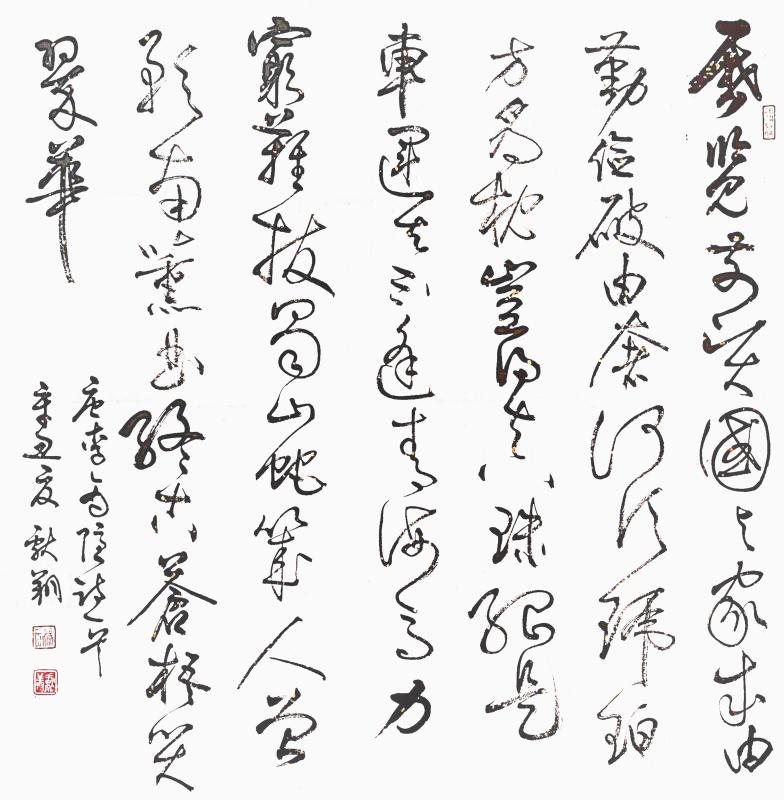 歷覽前賢國與家成由
勤儉破由奢何須琥珀
方為枕豈得真珠始是
車運去不逢青海馬力
窮難拔蜀山蛇幾人曾
預南薰曲終古蒼梧哭
翠華
唐李商隱詩一首
辛丑夏獻翔